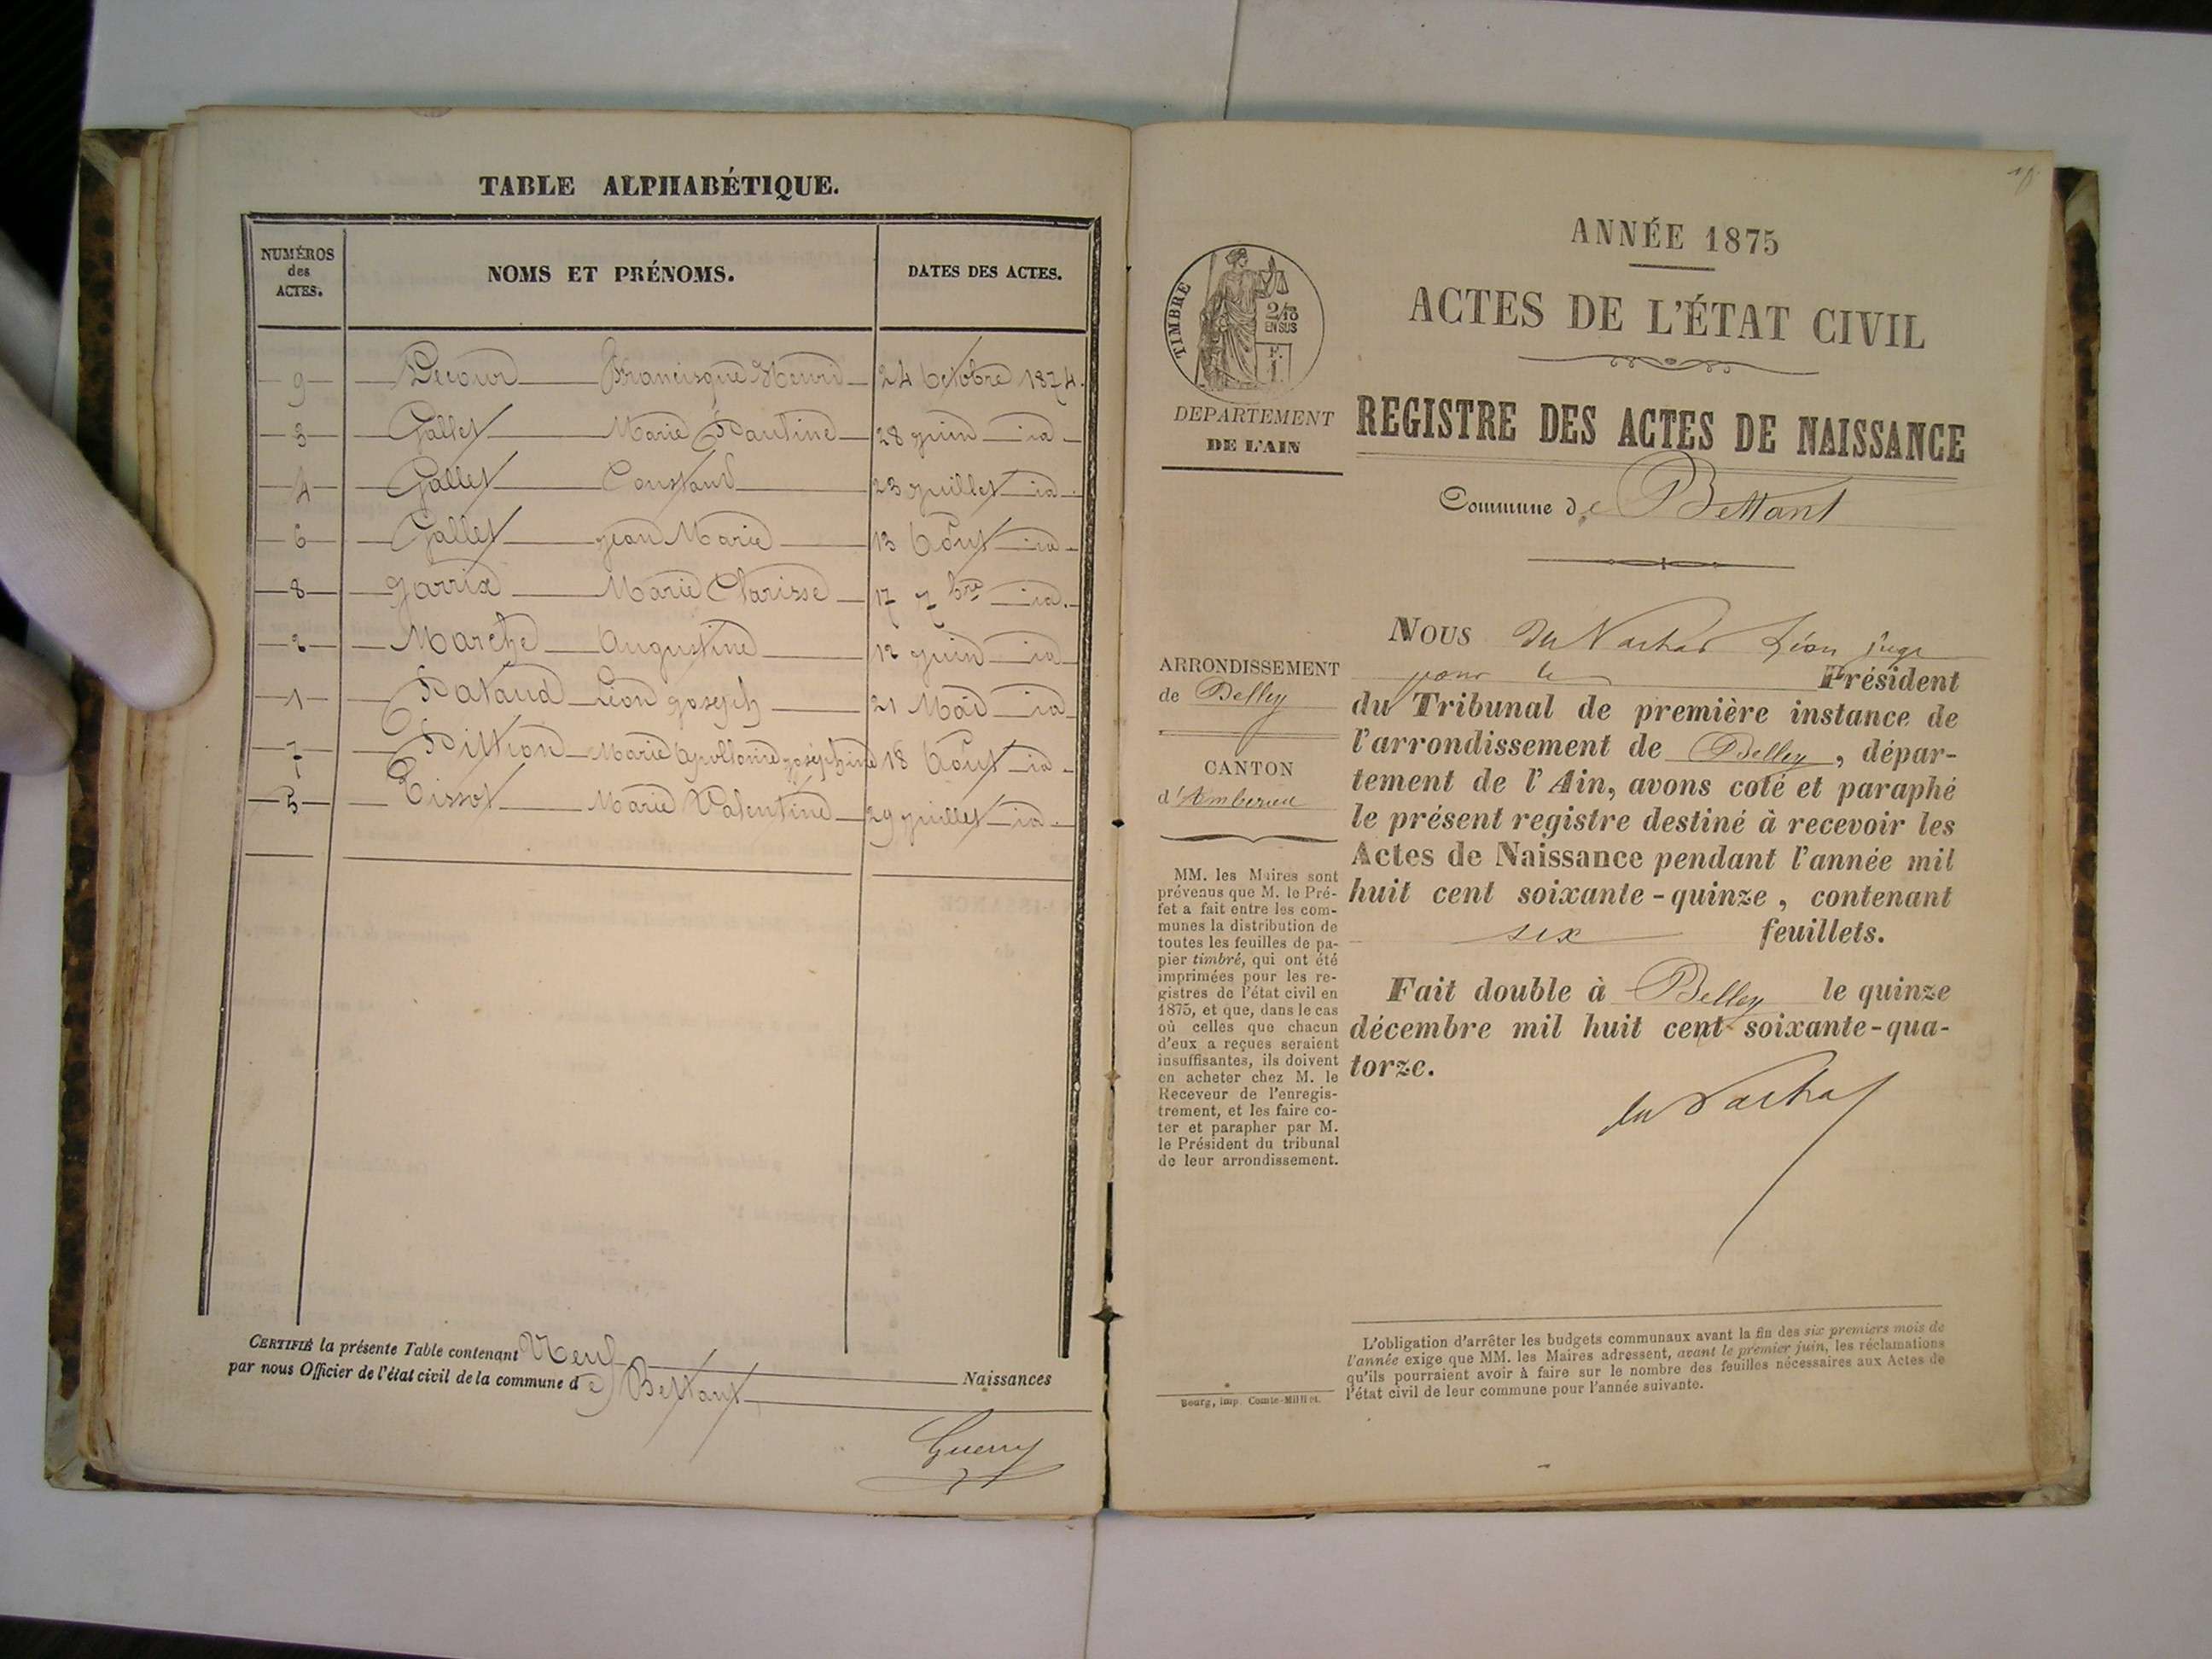 TABLE ALPHABÉTIQUE.
NUMÉROS
des
ACTES.
NOMS ET PRÉNOMS.
DATES DES ACTES.
9 Decour Francisque Henri 24 Octobre 1874.
3 Gallet Marie Pauline 28 juin id
4 Gallet Constant 23 juillet id.
6 Gallet jean Marie 13 Août id
8 Garrix Marie Clarisse 17 7bre id.
2 Marche Augustine 12 juin id
1 Pataud Léon joseph 21 Mai id
7 Pittion Marie Apollonie joséphine 18 Août id
5 Tissot Marie Valentine 29 juillet id.
CERTIFIÉ la présente Table contenant Neuf
Naissances
par nous Officier de l'état civil de la commune de Bettant
Guerry
ANNÉE 1875
ACTES DE L'ÉTAT CIVIL
TIMBRE
2/10
EN SUS
F.
1
DEPARTEMENT
DE L'AIN
REGISTRE DES ACTES DE NAISSANCE
Commune de Bettant
ARRONDISSEMENT
de Belley
CANTON
d'Amberieu
MM. les Maires sont
prévenus que M. le Pré-
fet a fait entre les com-
munes la distribution de
toutes les feuilles de pa-
pier timbré, qui ont été
imprimées pour les re-
gistres de l'état civil en
1875, et que, dans le cas
où celles que chacun
d'eux a reçues seraient
insuffisantes, ils doivent
en acheter chez M. le
Receveur de l'enregis-
trement, et les faire co-
ter et parapher par M.
le Président du tribunal
de leur arrondissement.
NOUS du Nachat Léon juge
pour le Président
du Tribunal de première instance de
l'arrondissement de Belley, dépar-
tement de l'Ain, avons coté et paraphé
le présent registre destiné à recevoir les
Actes de Naissance pendant l'année mil
huit cent soixante-quinze, contenant
six feuillets.
Fait double à Belley le quinze
décembre mil huit cent soixante-qua-
torze.
du Nachat
L'obligation d'arrêter les budgets communaux avant la fin des six premiers mois de
l'année exige que MM. les Maires adressent, avant le premier juin, les réclamations
qu'ils pourraient avoir à faire sur le nombre des feuilles nécessaires aux Actes de
l'état civil de leur commune pour l'année suivante.
Bourg, imp. Comte-Milliet.